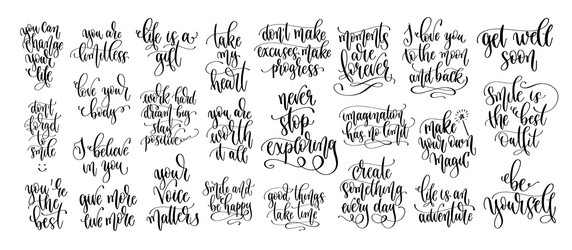 you can
change
your
life
don't
forget
to
smile
:)
you're
the
best
you are
limitless
love your
body
I believe
in you
give more
live more
life is a
gift
work hard
dream big
stay
positive
your
voice
matters
take
my
heart
you are
worth
it all
Smile and
be happy
don't make
excuses make
progress
never
stop
exploring
good things
take time
moments
are
forever
imagination
has no limit
create
something
every day
I love you
to the moon
and back
make
your own
magic
life is an
adventure
get well
soon
Smile is
the best
outfit
be
yourself